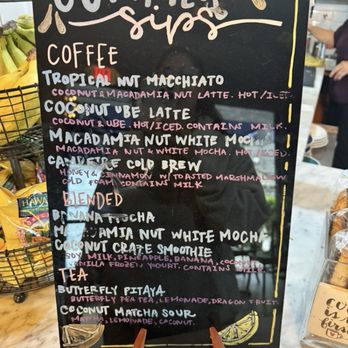 SUMMER
sips
COFFEE
TROPICAL NUT MACCHIATO
COCONUT & MACADAMIA NUT LATTE. HOT/ICED.
COCONUT UBE LATTE
COCONUT & UBE. HOT/ICED. CONTAINS MILK.
MACADAMIA NUT WHITE MOCHA
MACADAMIA NUT & WHITE MOCHA. HOT/ICED.
CAMPFIRE COLD BREW
HONEY & CINNAMON W/ TOASTED MARSHMALLOW
COLD FOAM. CONTAINS MILK
BLENDED
BANANA MOCHA
MACADAMIA NUT WHITE MOCHA
COCONUT CRAZE SMOOTHIE
SOY MILK, PINEAPPLE, BANANA, COCONUT,
VANILLA FROZEN YOGURT. CONTAINS MILK.
TEA
BUTTERFLY PITAYA
BUTTERFLY PEA TEA, LEMONADE, DRAGON FRUIT.
COCONUT MATCHA SOUR
MATCHA, LEMONADE, COCONUT.